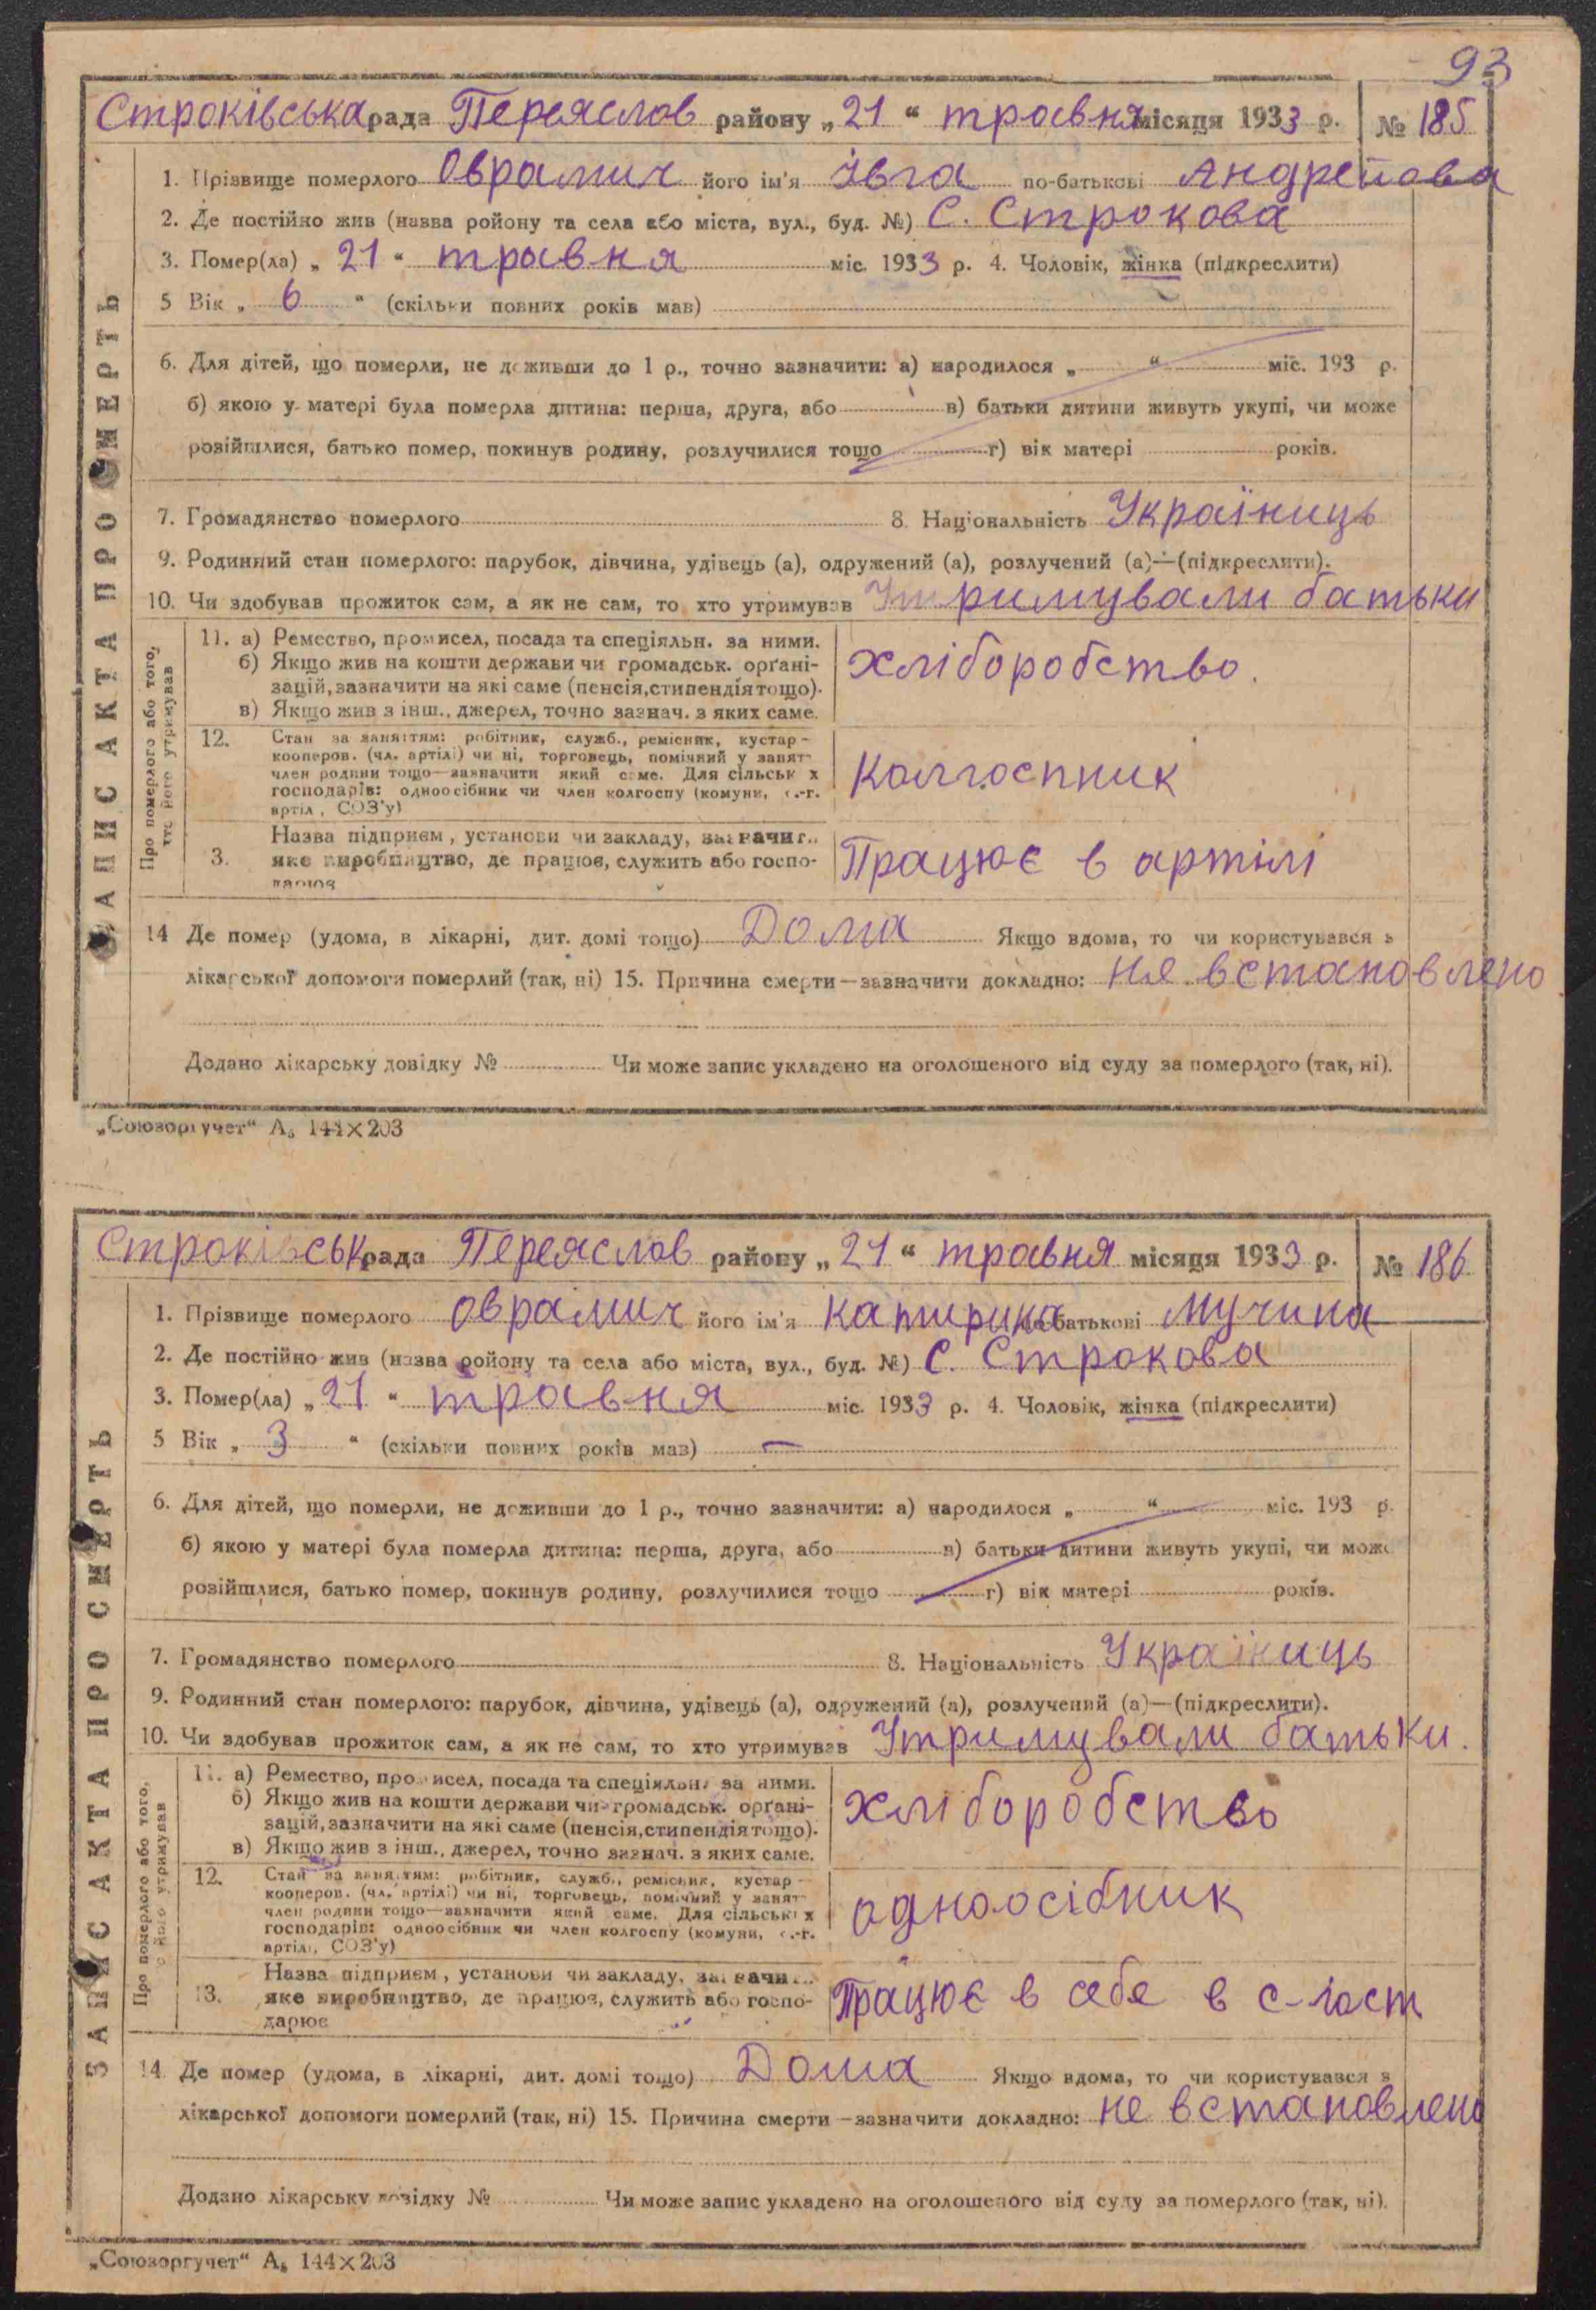 93
Строківська рада Переяслов району „21“ травня місяця 1933 р. № 185
ЗАПИС АКТА ПРО СМЕРТЬ
1. Прізвище померлого Оврамич його ім'я Івга по-батькові Андрейова
2. Де постійно жив (назва ройону та села або міста, вул., буд. №) С. Строкова
3. Помер(ла) „21“ травня міс. 1933 р. 4. Чоловік, жінка (підкреслити)
5 Вік „6“ (скільки повних років мав)
6. Для дітей, що померли, не доживши до 1 р., точно зазначити: а) народилося „ “ міс. 193 р.
б) якою у матері була померла дитина: перша, друга, або в) батьки дитини живуть укупі, чи може
розійшлися, батько помер, покинув родину, розлучилися тощо г) вік матері років.
7. Громадянство померлого 8. Національність Україниць
9. Родинний стан померлого: парубок, дівчина, удівець (а), одружений (а), розлучений (а)—(підкреслити).
10. Чи здобував прожиток сам, а як не сам, то хто утримував Утримували батьки
Про померлого або того, хто його утримував
11. а) Ремество, промисел, посада та спеціяльн. за ними.
б) Якщо жив на кошти держави чи громадськ. орґані-
зацій, зазначити на які саме (пенсія, стипендія тощо).
в) Якщо жив з інш., джерел, точно зазнач. з яких саме.
хліборобство.
12. Стан за заняттям: робітник, служб., ремісник, кустар-
кооперов. (чл. артілі) чи ні, торговець, помічний у занят-
член родини тощо—зазначити який саме. Для сільськ х
господарів: одноосібник чи член колгоспу (комуни, с.-г.
артіл, СОЗ'у)
Колгоспник
3. Назва підприєм, установи чи закладу, зазначит..
яке виробництво, де працює, служить або госпо-
дарює
Працює в артілі
14 Де помер (удома, в лікарні, дит. домі тощо) Дома Якщо вдома, то чи користувався з
лікарської допомоги померлий (так, ні) 15. Причина смерти—зазначити докладно: не встановлено
Додано лікарську довідку № Чи може запис укладено на оголошеного від суду за померлого (так, ні).
„Союзоргучет“ А₅ 144×203
Строківськ рада Переяслов району „21“ травня місяця 1933 р. № 186
ЗАПИС АКТА ПРО СМЕРТЬ
1. Прізвище померлого оврамич його ім'я катирина по батькові Мучина
2. Де постійно жив (назва ройону та села або міста, вул., буд. №) С. Строкова
3. Помер(ла) „21“ травня міс. 1933 р. 4. Чоловік, жінка (підкреслити)
5 Вік „3“ (скільки повних років мав) —
6. Для дітей, що померли, не доживши до 1 р., точно зазначити: а) народилося „ “ міс. 193 р.
б) якою у матері була померла дитина: перша, друга, або в) батьки дитини живуть укупі, чи може
розійшлися, батько помер, покинув родину, розлучилися тощо г) вік матері років.
7. Громадянство померлого 8. Національність Україниць
9. Родинний стан померлого: парубок, дівчина, удівець (а), одружений (а), розлучений (а)—(підкреслити).
10. Чи здобував прожиток сам, а як не сам, то хто утримував Утримували батьки.
Про померлого або того, хто його утримував
11. а) Ремество, промисел, посада та спеціяльн. за ними.
б) Якщо жив на кошти держави чи громадськ. орґані-
зацій, зазначити на які саме (пенсія, стипендія тощо).
в) Якщо жив з інш., джерел, точно зазнач. з яких саме.
хліборобство
12. Стан за заняттям: робітник, служб., ремісник, кустар-
кооперов. (чл. артілі) чи ні, торговець, помічний у занят-
член родини тощо—зазначити який саме. Для сільськ х
господарів: одноосібник чи член колгоспу (комуни, с.-г.
артілі, СОЗ'у)
одноосібник
13. Назва підприєм, установи чи закладу, зазначи...
яке виробництво, де працює, служить або госпо-
дарює
Працює в себе в с-госп
14. Де помер (удома, в лікарні, дит. домі тощо) Дома Якщо вдома, то чи користувався з
лікарської допомоги померлий (так, ні) 15. Причина смерти—зазначити докладно: не встановлено
Додано лікарську довідку № Чи може запис укладено на оголошеного від суду за померлого (так, ні).
„Союзоргучет“ А₅ 144×203